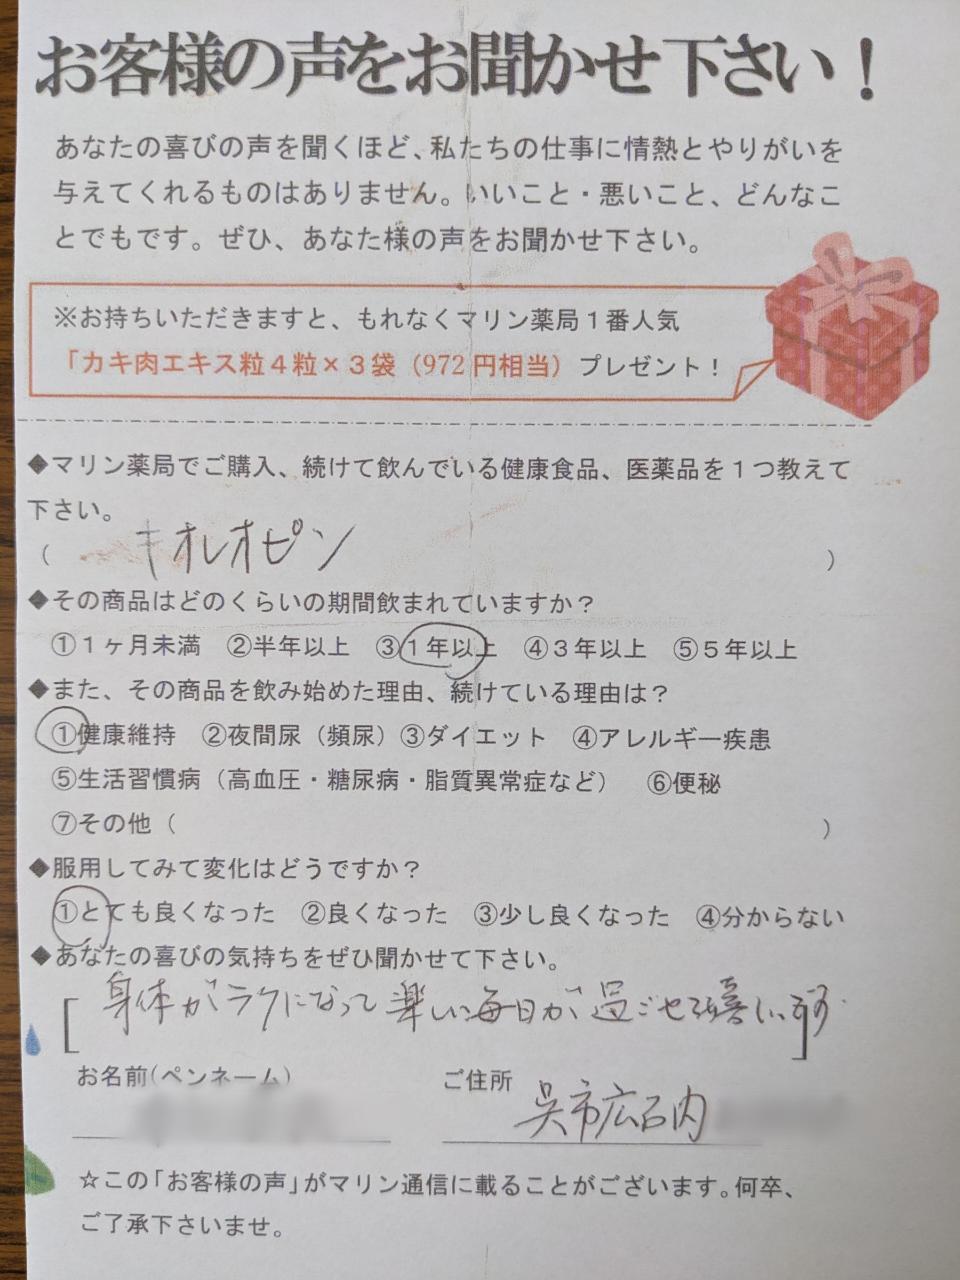 お客様の声をお聞かせ下さい!
あなたの喜びの声を聞くほど、私たちの仕事に情熱とやりがいを
与えてくれるものはありません。いいこと・悪いこと、どんなこ
とでもです。ぜひ、あなた様の声をお聞かせ下さい。
※お持ちいただきますと、もれなくマリン薬局1番人気
「カキ肉エキス粒4粒×3袋(972円相当) プレゼント!
◆マリン薬局でご購入、続けて飲んでいる健康食品、医薬品を1つ教えて
下さい。
( キオレオピン )
◆その商品はどのくらいの期間飲まれていますか?
①1ヶ月未満 ②半年以上 ③1年以上 ④3年以上 ⑤5年以上
◆また、その商品を飲み始めた理由、続けている理由は?
①健康維持 ②夜間尿(頻尿)③ダイエット ④アレルギー疾患
⑤生活習慣病(高血圧・糖尿病・脂質異常症など) ⑥便秘
⑦その他( )
◆服用してみて変化はどうですか?
①とても良くなった ②良くなった ③少し良くなった ④分からない
◆あなたの喜びの気持ちをぜひ聞かせて下さい。
[身体がラクになって楽しい毎日が過ごせて嬉しいです]
お名前(ペンネーム) ご住所
呉市広石内
☆この「お客様の声」がマリン通信に載ることがございます。何卒、
ご了承下さいませ。